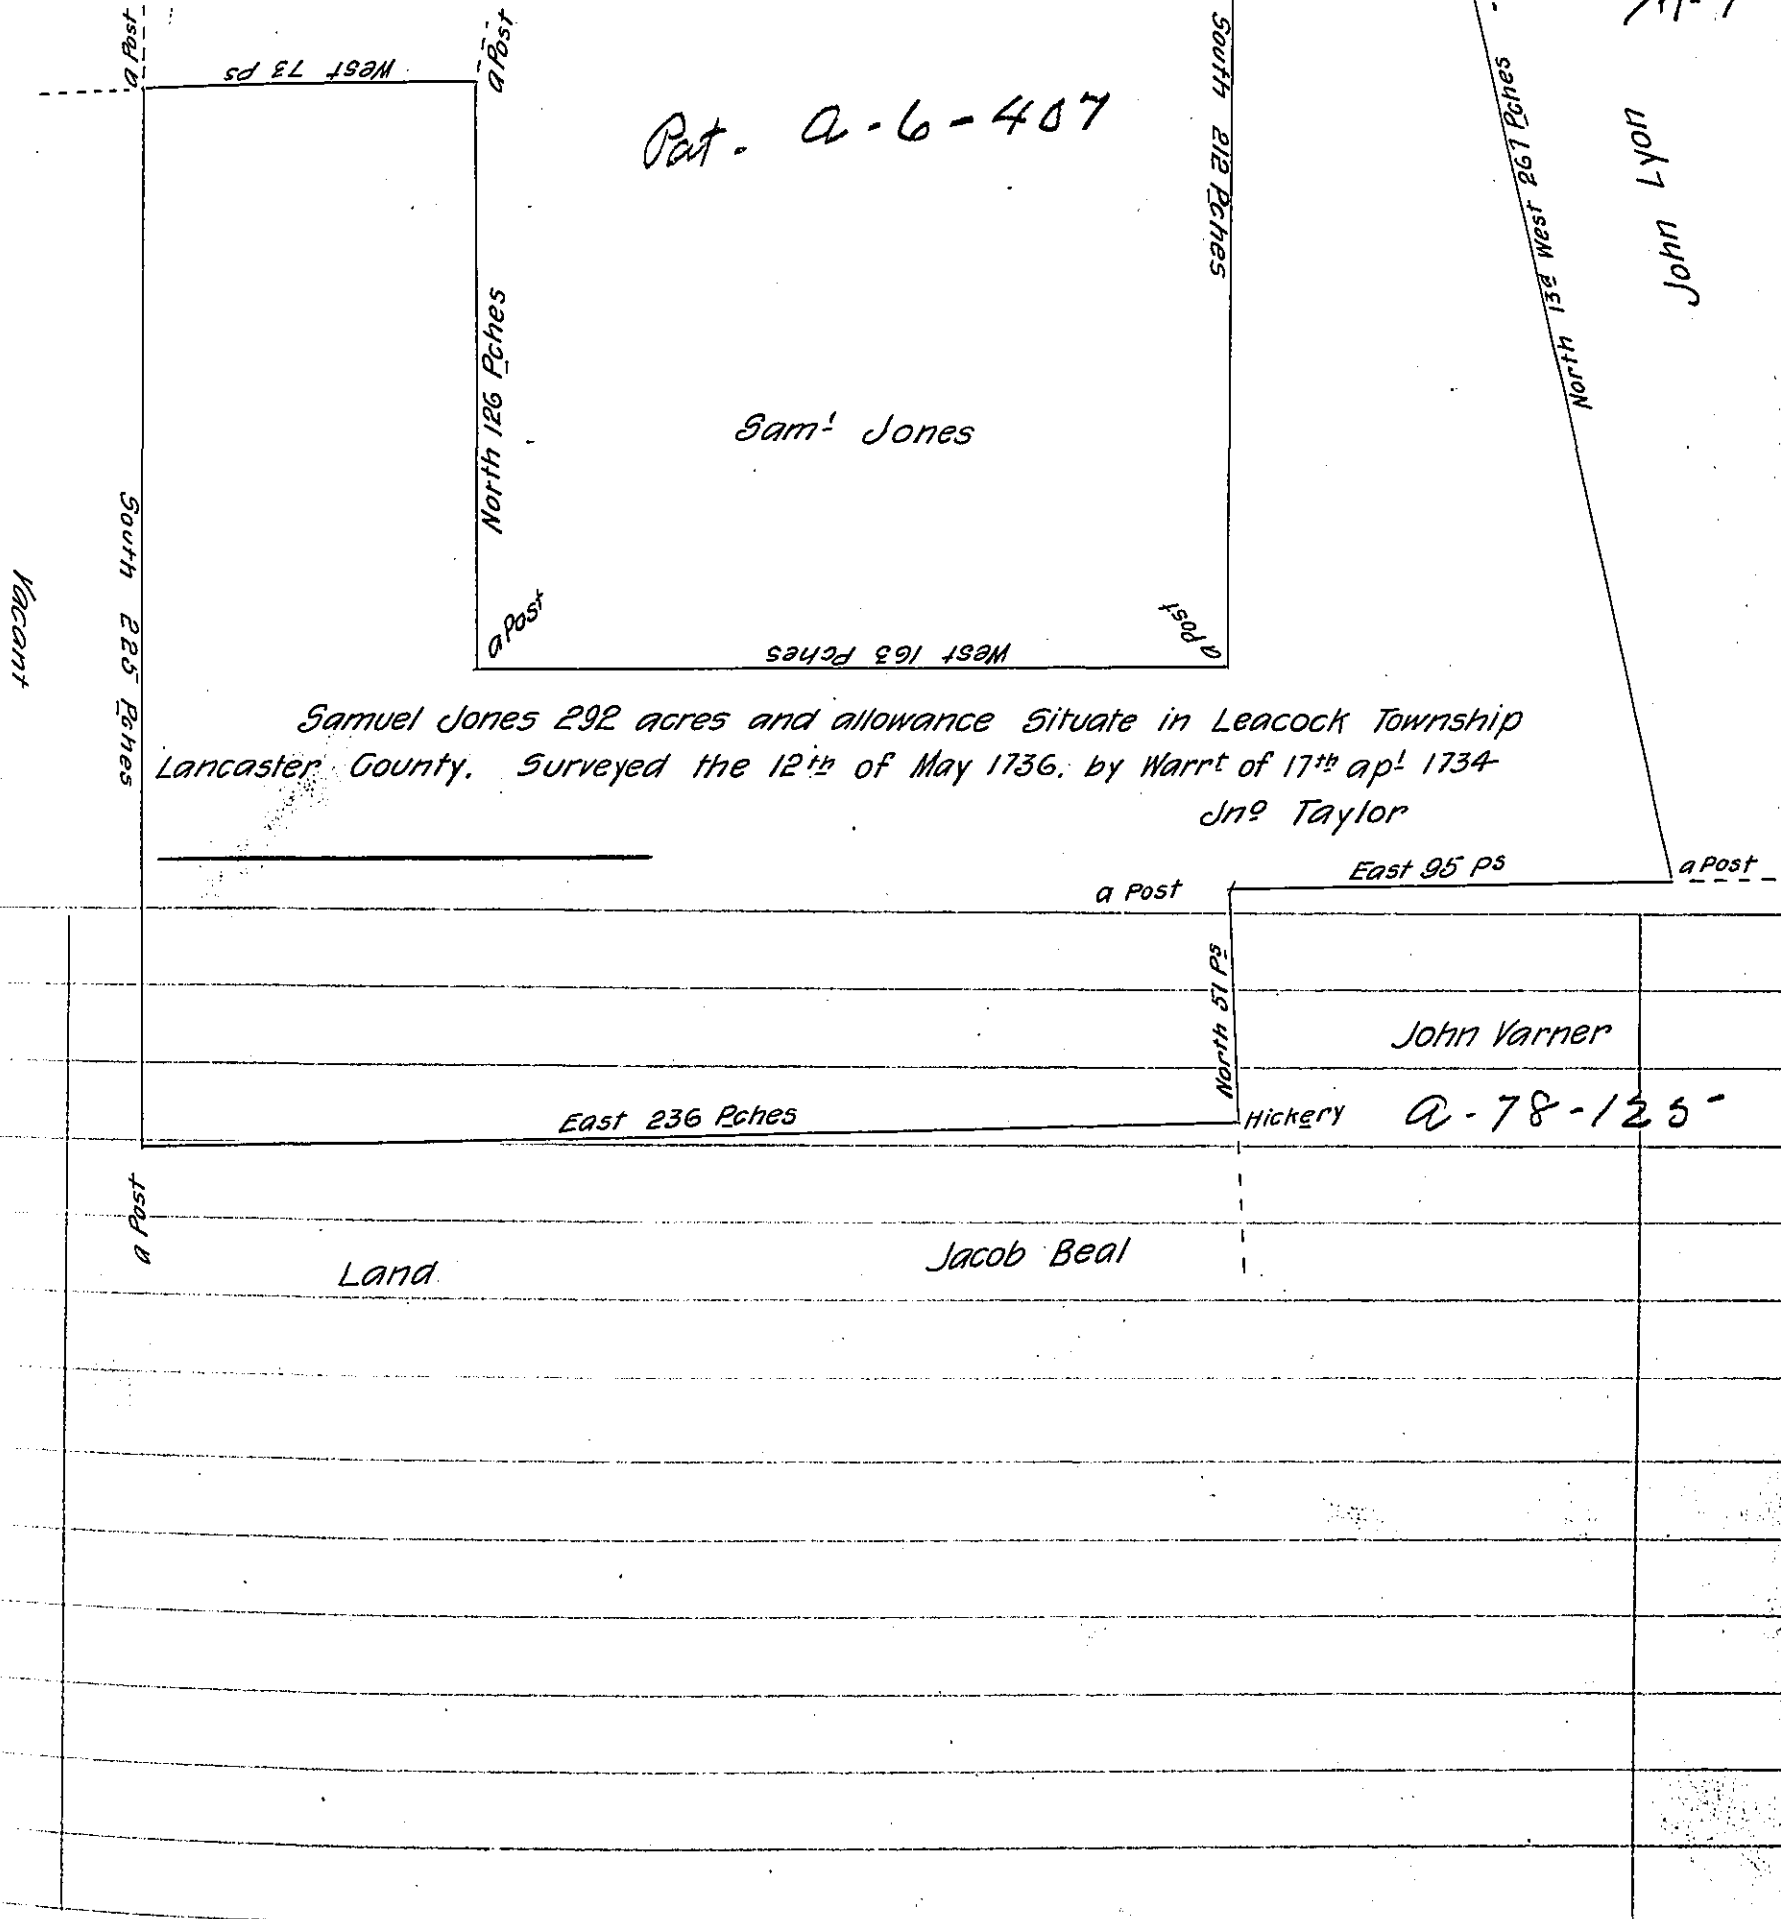 a Post
West 73 ps
a Post
Pat. A-6-407
South 212 Pches
North 13d West 267 Pches
John Lyon
North 126 Pches
Saml Jones
South 225 Pches
Vacant
a Post
West 163 Pches
a Post
Samuel Jones 292 acres and allowance Situate in Leacock Township
Lancaster County. Surveyed the 12th of May 1736. by Warrt of 17th apl 1734
Jno Taylor
East 95 Ps
a Post
a Post
North 51 Ps
John Varner
East 236 Pches
Hickery
A-78-125
a Post
Land
Jacob Beal